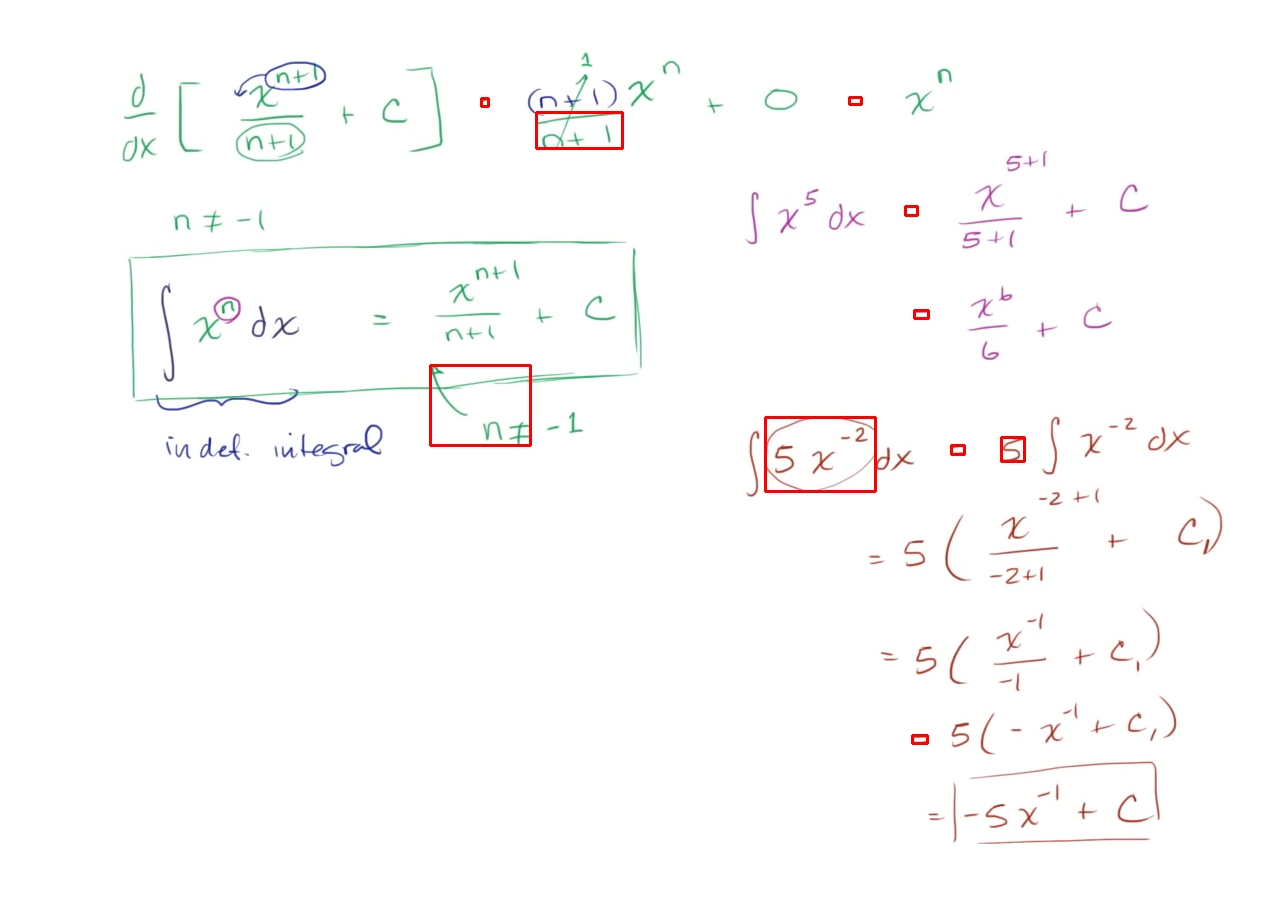 d/dx [ x^(n+1)/(n+1) + C ] = (n+1)x^n/(n+1) + 0 = x^n
1
n ≠ -1
∫ x^n dx = x^(n+1)/(n+1) + C
n ≠ -1
indef. integral
∫ x^5 dx = x^(5+1)/(5+1) + C
= x^6/6 + C
∫ 5x^-2 dx = 5 ∫ x^-2 dx
= 5 ( x^(-2+1)/(-2+1) + C₁ )
= 5 ( x^-1/-1 + C₁ )
= 5 ( -x^-1 + C₁ )
= -5x^-1 + C